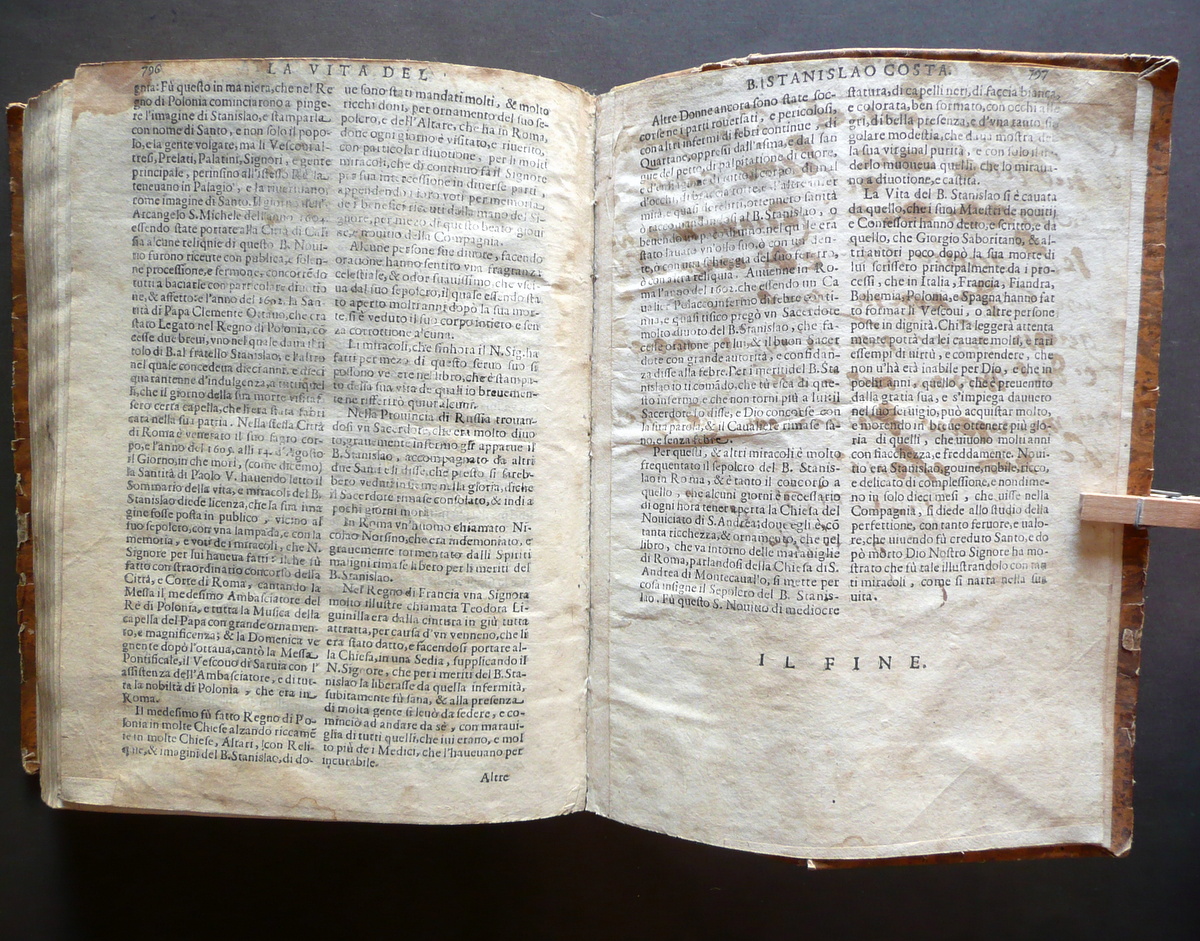 796
LA VITA DEL
gnia: Fù questo in maniera, che nel Re
gno di Polonia cominciarono a pinge-
re l'imagine di Stanislao, e stamparla
con nome di Santo, e non solo il popo-
lo, e la gente volgare, ma li Vescoui al-
tresi, Prelati, Palatini, Signori, e gente
principale, perinfino all'istesso Rè la
teneuano in Palagio, e la riueriuano,
come imagine di Santo. Il giorno dell'
Arcangelo S. Michele dell'anno 1604.
essendo state portate alla Città di
sia alcune reliquie di questo B. Noui-
tio furòno riceute con publica, e solen-
ne processione, e sermone, concorrēdo
tutti a baciarle con particolare diuotio
ne, & affetto: e l'anno del 1602. la San-
tità di Papa Clemente Ottauo, che era
stato Legato nel Regno di Polonia, cō
cesse due breui, vno nel quale daua il ti
tolo di B. al fratello Stanislao, e l'altro
nel quale concedeua dieci anni, e dieci
quarantene d'indulgenza, a tutti quel
li, che il giorno della sua morte visitas
sero certa capella, che li era stata fabri
cata nella sua patria. Nella stessa Città
di Roma è venerato il suo sagro cor-
po, e l'anno del 1605. alli 14. d'Agosto
il Giorno, in che morì, (come dicēmo)
la Santità di Paolo V. hauendo letto il
Sommario della vita, e miracoli del B.
Stanislao diede licenza, che la sua ima
gine fosse posta in publico, vicino al
suo sepolcro, cor vna lampada, e con la
memoria, e voti de i miracoli, che N.
Signore per lui haueua fatti: il che fù
fatto con straordinario concorso della
Città, e Corte di Roma, cantando la
Messa il medesimo Ambasciatore del
Rè di Polonia, e tutta la Musica della
capella del Papa con grande ornamen-
to, e magnificenza; & la Domenica ve
gnente dopò l'ottaua, cantò la Messa
Pontificale, il Vescouo di Saruia con l'
assistenza dell'Ambasciatore, e di tut-
ta la nobiltà di Polonia, che era in
Roma.
Il medesimo fù fatto Regno di Po-
lonia in molte Chiese alzando riccamē
te in molte Chiese, Altari, con Reli-
quie, & imagini del B. Stanislao, di do-
ue sono stati mandati molti, & molto
ricchi doni, per ornamento del suo se-
polcro, e dell'Altare, che ha in Roma,
done ogni giorno è visitato, e riuerito,
con particolar diuotione, per li molti
miracoli, che di continuo fà il Signore
per sua intercessione in diuerse parti,
appendendo i loro voti per memoria
de i benefici riceuti dalla mano del Si-
gnore, per mezo di questo beato gioui
ne, e nouitio della Compagnia.
Alcune persone sue diuote, facendo
oratione hanno sentito vna fragranza
celestiale, & odor suauissimo che vsci-
ua dal suo sepolcro, il quale essendo sta
to aperto molti anni dopò la sua mor-
te, si è veduto il suo corpo intero e sen
za corrottione alcuna.
Li miracoli, che sinhora il N. Sig. ha
fatti per mezo di questo seruo suo si
possono vedere nel libro, che è stampa-
to della sua vita de quali io breuemen-
te riferirò qui alcuni.
Nella Prouincia di Russia trouan-
dosi vn Sacerdote, che era molto diuo
to, grauemente infermo gli apparue il
B. Stanislao, accompagnato da altri
due Santi e li disse, che presto si sareb-
bero veduti insieme nella gloria, si che
il Sacerdote rimase consolato, & indi a
pochi giorni morì.
In Roma vn'huomo chiamato Ni-
colao Norsino, che era indemoniato, e
grauemente tormentato dalli Spiriti
maligni rimase libero per li meriti del
B. Stanislao.
Nel Regno di Francia vna Signora
molto illustre chiamata Teodora Li-
guinilla era dalla cintura in giù tutta
attratta, per causa d'vn venneno, che li
era stato datto, e facendosi portare al-
la Chiesa, in una Sedia, supplicando il
N. Signore, che per i meriti del B. Sta-
nislao la liberasse da quella infermità,
subitamente fù sana, & alla presenza
di molta gente si leuò da sedere, e co-
minciò ad andare da sè, con maraui-
glia di tutti quelli, che iui erano, e mol
to più de i Medici, che l'haueuano per
incurabile.
Altre
B. STANISLAO COSTA.
797
Altre Donne ancora sono state soc-
corse ne i parti rouersati, e pericolosi,
con altri infermi di febri continue, di
Quartane, oppressi dall'asma, e dal san
gue del petto, di palpitatione di cuore,
e d'occhi, di braccia torte, e d'altre infer
mità, e quasi feriti, ottennero sanità
ò raccomandandosi al B. Stanislao, o
benendo vn poco d'acqua, nel qu le era
stato lauato vn'osso suo, ò con vn den-
te, o con una scheggia del suo feretro,
ò con altra reliquia. Auuenne in Ro-
ma l'anno del 1602. che essendo un Ca
ualier Polacco infermo di febre conti-
nua, e quasi tisico pregò vn Sacerdote
molto diuoto del B. Stanislao, che fa-
cesse oratione per lui, & il buon Sacer
dote con grande autorità, e confidan-
za disse alla febre. Per i meriti del B. Sta
nislao io ti comādo, che tù esca di que-
sto infermo e che non torni più a lui: il
Sacerdote lo disse, e Dio concorse con
la sua parola, & il Caualiere rimase sa-
no, e senza febre.
Per quelli, & altri miracoli è molto
frequentato il sepolcro del B. Stanis-
lao in Roma, & è tanto il concorso a
quello, che alcuni giorni è necessario
di ogni hora tener aperta la Chiesa del
Nouiciato di S. Andrea; doue egli è, cō
tanta ricchezza, & ornamento, che nel
libro, che va intorno delle marauiglie
di Roma, parlandosi della Chiesa di S.
Andrea di Montecauallo, si mette per
cosa insigne il Sepolcro del B. Stanis-
lao. Fù questo S. Nouitio di mediocre
statura, di capelli neri, di faccia bianca,
e colorata, ben formato, con occhi alle
gri, di bella presenza, e d'vna tanto si
golare modestia, che daua mostra del
la sua virginal purità, e con solo il ve
derlo muoneua quelli, che lo miraua-
no a diuotione, e castità.
La Vita del B. Stanislao si è cauata
da quello, che i suoi Maestri de nouitij
e Confessori hanno detto, e scritto, e da
quello, che Giorgio Saboritano, & al-
tri autori poco dopò la sua morte di
lui scrissero principalmente da i pro-
cessi, che in Italia, Francia, Fiandra,
Bohemia, Polonia, e Spagna hanno fat
to formar li Vescoui, o altre persone
poste in dignità. Chi la leggerà attenta
mente potrà da lei cauare molti, e rari
essempi di uirtù, e comprendere, che
non u'hà erà inabile per Dio, e che in
pochi anni, quello, che è preuenuto
dalla gratia sua, e s'impiega dauuero
nel suo seruigio, può acquistar molto,
e morendo in breue ottenere più glo-
ria di quelli, che uiuono molti anni
con fiacchezza, e freddamente. Noui-
tio era Stanislao, gouine, nobile, ricco,
e delicato di complessione, e nondime-
no in solo dieci mesi, che uisse nella
Compagnia, si diede allo studio della
perfettione, con tanto feruore, e ualo-
re, che uiuendo fù creduto Santo, e do
pò morto Dio Nostro Signore ha mo-
strato che fù tale illustrandolo con tan
ti miracoli, come si narra nella sua
uita.
IL FINE.